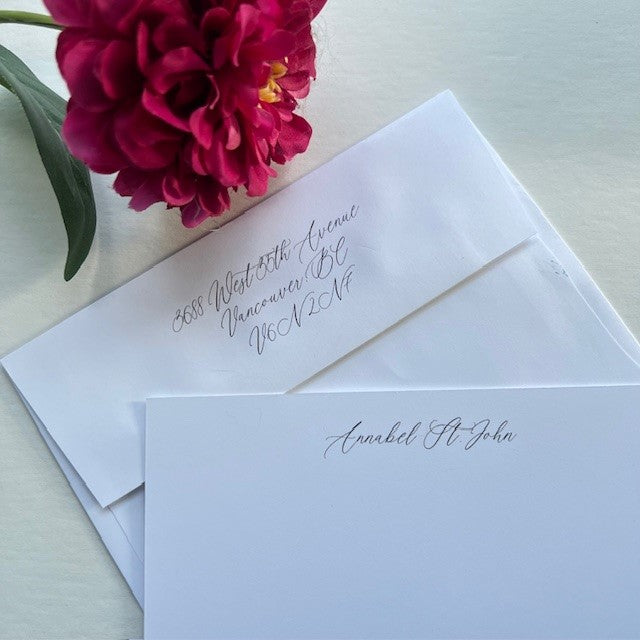 3688 West 35th Avenue
Vancouver BC
V6N 2N7
Annabel St-John